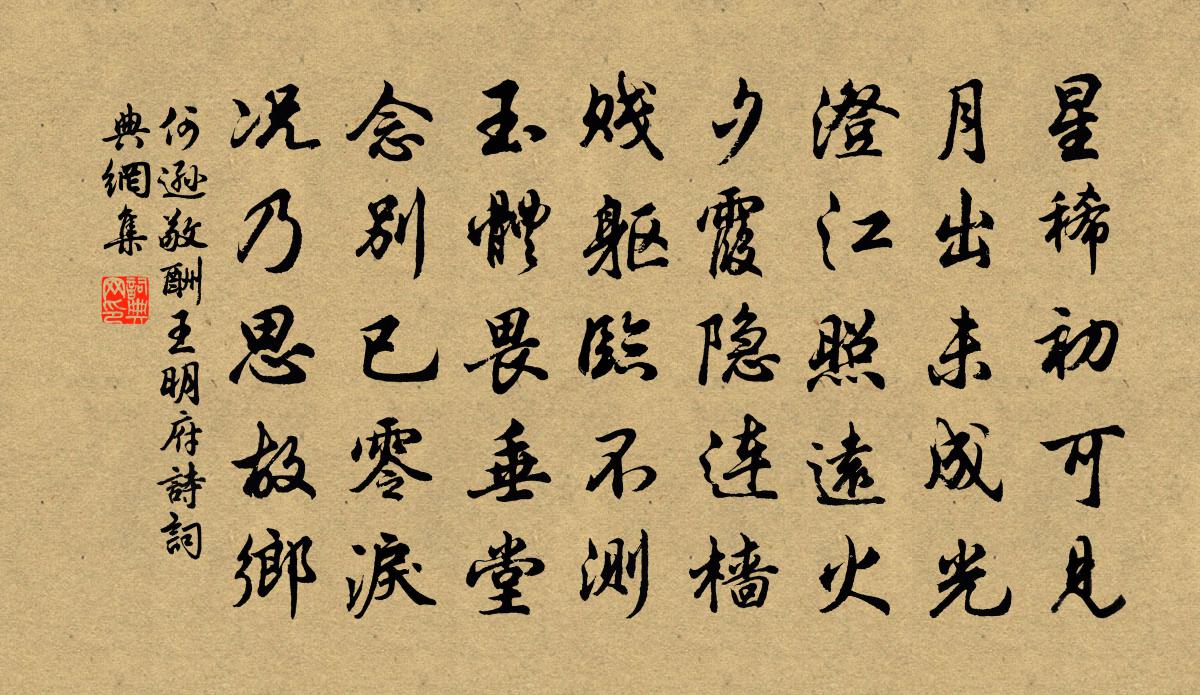 星稀初可見
月出未成光
澄江照遠火
夕霞隐連檣
賤軀臨不測
玉體畏垂堂
念別已零淚
况乃思故鄉
何遜敬酬王明府詩詞
典網集
詞典
网印